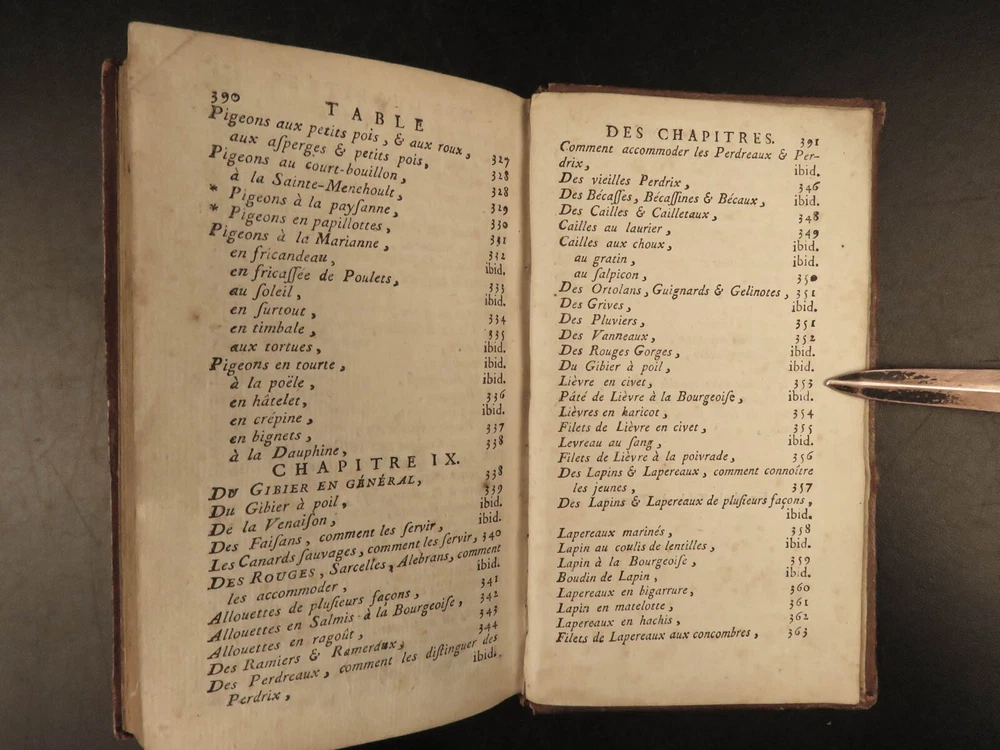 390
TABLE
Pigeons aux petits pois, & aux roux, 327
aux asperges & petits pois, 328
Pigeons au court-bouillon, 328
à la Sainte-Menehoult, 329
* Pigeons à la paysanne, 330
* Pigeons en papillottes, 331
Pigeons à la Marianne, 332
en fricandeau, ibid.
en fricassée de Poulets, 333
au soleil, ibid.
en surtout, 334
en timbale, 335
aux tortues, ibid.
Pigeons en tourte, ibid.
à la poële, ibid.
en hâtelet, 336
en crépine, ibid.
en bignets, 337
à la Dauphine, 338
CHAPITRE IX.
DU GIBIER EN GÉNÉRAL, 338
Du Gibier à poil, 339
De la Venaison, ibid.
Des Faisans, comment les servir, ibid.
Les Canards sauvages, comment les servir, 340
DES ROUGES, Sarcelles, Alebrans, comment
les accommoder, ibid.
Allouettes de plusieurs façons, 341
Allouettes en Salmis à la Bourgeoise, 342
Allouettes en ragoût, 343
Des Ramiers & Ramereaux, 344
Des Perdreaux, comment les distinguer des
Perdrix, ibid.
DES CHAPITRES. 391
Comment accommoder les Perdreaux & Per-
drix, ibid.
Des vieilles Perdrix, 346
Des Bécasses, Bécassines & Bécaux, ibid.
Des Cailles & Cailletaux, 348
Cailles au laurier, 349
Cailles aux choux, ibid.
au gratin, ibid.
au salpicon, 350
Des Ortolans, Guignards & Gelinotes, 351
Des Grives, ibid.
Des Pluviers, 351
Des Vanneaux, 352
Des Rouges Gorges, ibid.
Du Gibier à poil, ibid.
Lièvre en civet, 353
Pâté de Lièvre à la Bourgeoise, ibid.
Lièvres en haricot, 354
Filets de Lièvre en civet, 355
Levreau au sang, ibid.
Filets de Lièvre à la poivrade, 356
Des Lapins & Lapereaux, comment connoître
les jeunes, 357
Des Lapins & Lapereaux de plusieurs façons,
ibid.
Lapereaux marinés, 358
Lapin au coulis de lentilles, ibid.
Lapin à la Bourgeoise, 359
Boudin de Lapin, ibid.
Lapereaux en bigarrure, 360
Lapin en matelotte, 361
Lapereaux en hachis, 362
Filets de Lapereaux aux concombres, 363